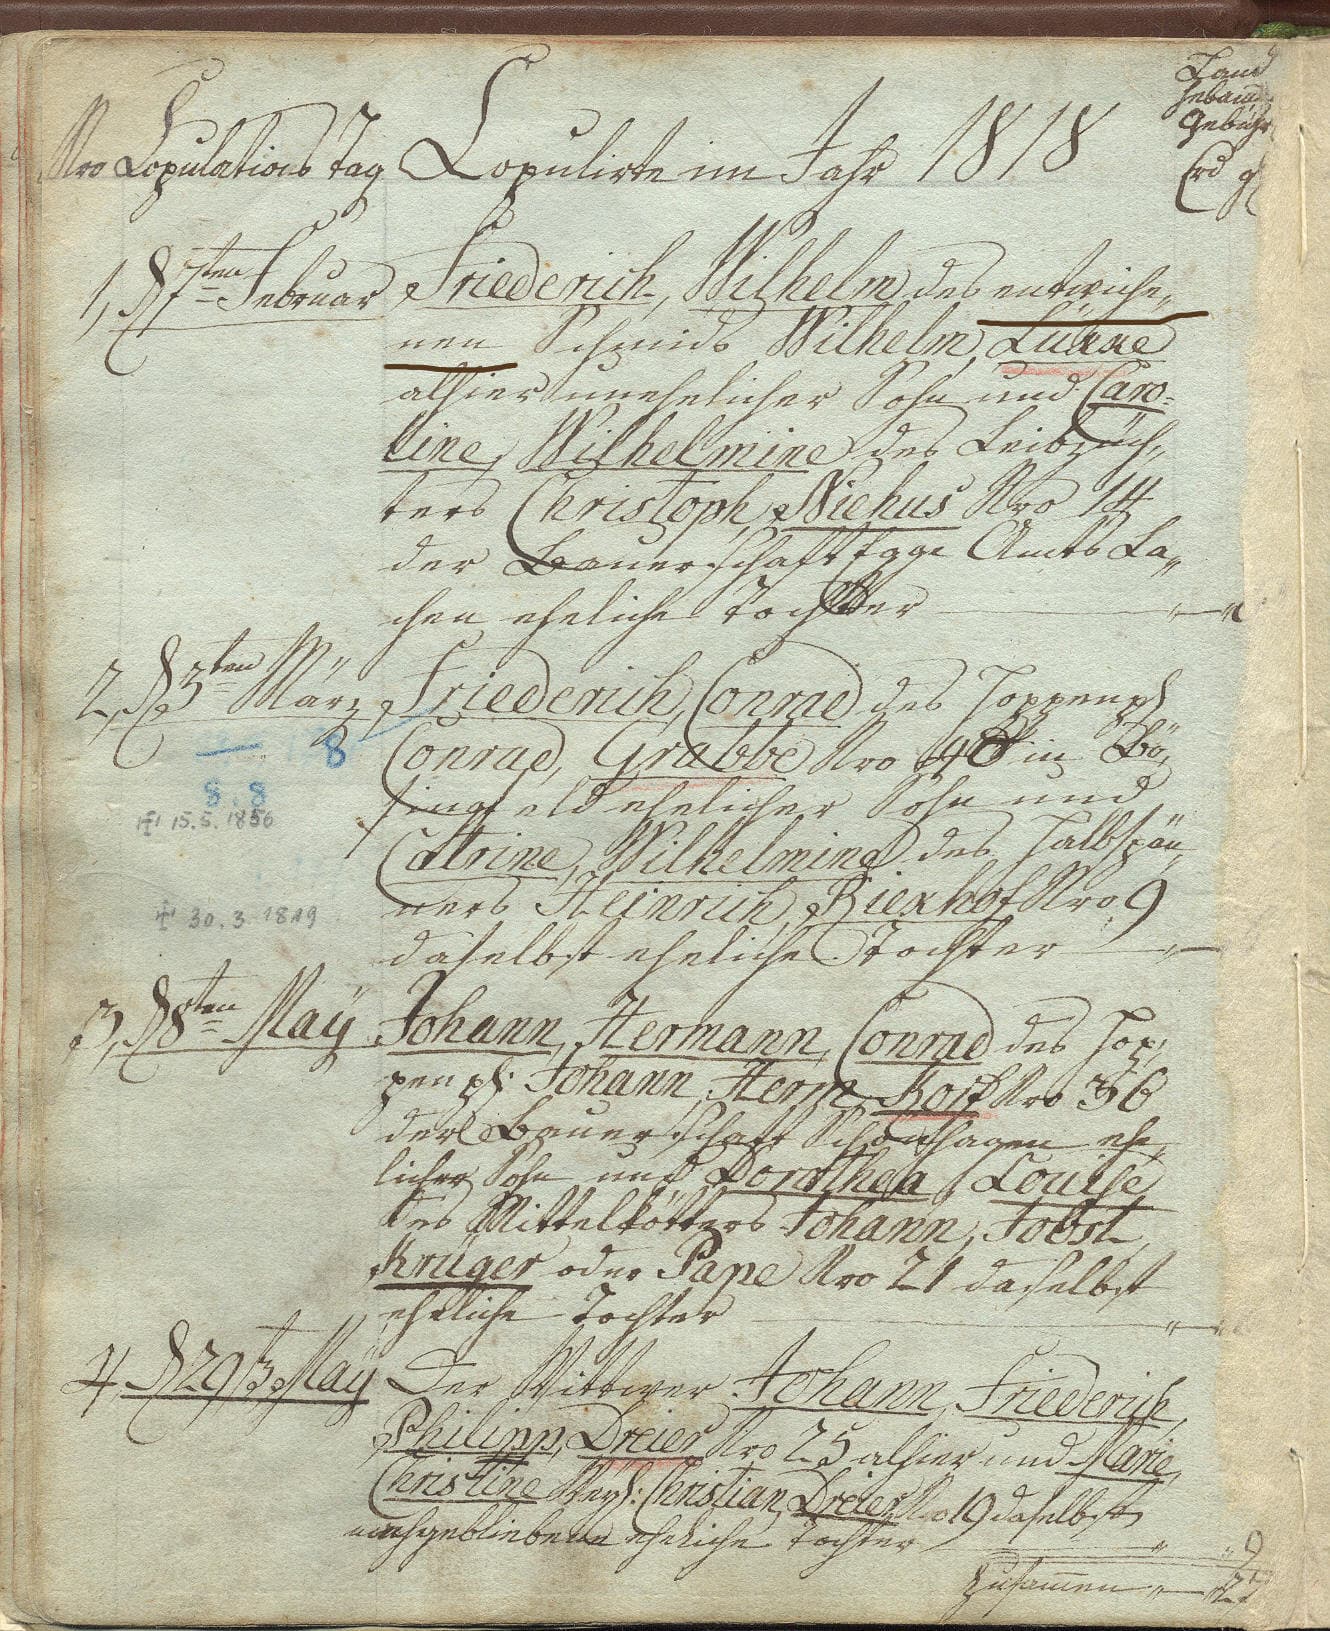 Nro Copulations Tag Copulirte im Jahr 1818
Land
Hebam
Gebühr
1, d 7ten Februar Friederich, Wilhelm des entwiche„
nen Schmids Wilhelm,
alhier unehelicher Sohn und Caro„
line, Wilhelmine des Leibzüch„
ters Christoph, Niehus Nro 14
der Bauerschaft Egge Amts La„
chen eheliche Tochter
2, d 3ten März Friederich, Conrad des Hoppenpl
8
Conrad, Grabbe Nro in Bö„
8.8
singfeld ehelicher Sohn und
15.5.1856
Catrine, Wilhelmine des Halbspän„
ners Heinrich, Riekhof Nro 9
30.3.1819
daselbst eheliche Tochter
3, d 8ten Maÿ Johann, Hermann, Conrad des Hop„
penpl: Johann, Herm, Korf Nro 36
der Bauerschaft Schönhagen ehe„
licher Sohn und Dorothea, Louise
des Mittelkötters Johann, Jobst,
Krüger oder Pape Nro 21 daselbst
eheliche Tochter
4, d 29t Maÿ Der Wittwer Johann, Friederich,
Philipp, Dreier Nro 25 alhier und Marie,
Christine Weyl: Christian, Dreier Nro 19 daselbst
nachgebliebene eheliche Tochter
9
Zusammen 27